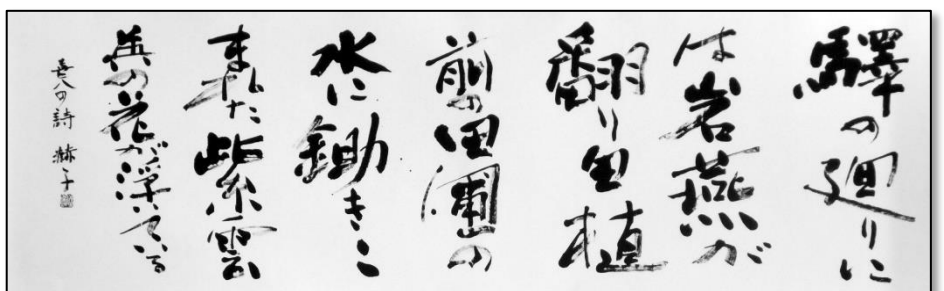 驛の廻りに
は岩燕が
翻り田植
前の田圃の
水に鋤きこ
まれた紫雲
英の花が浮いている
喜八の詩